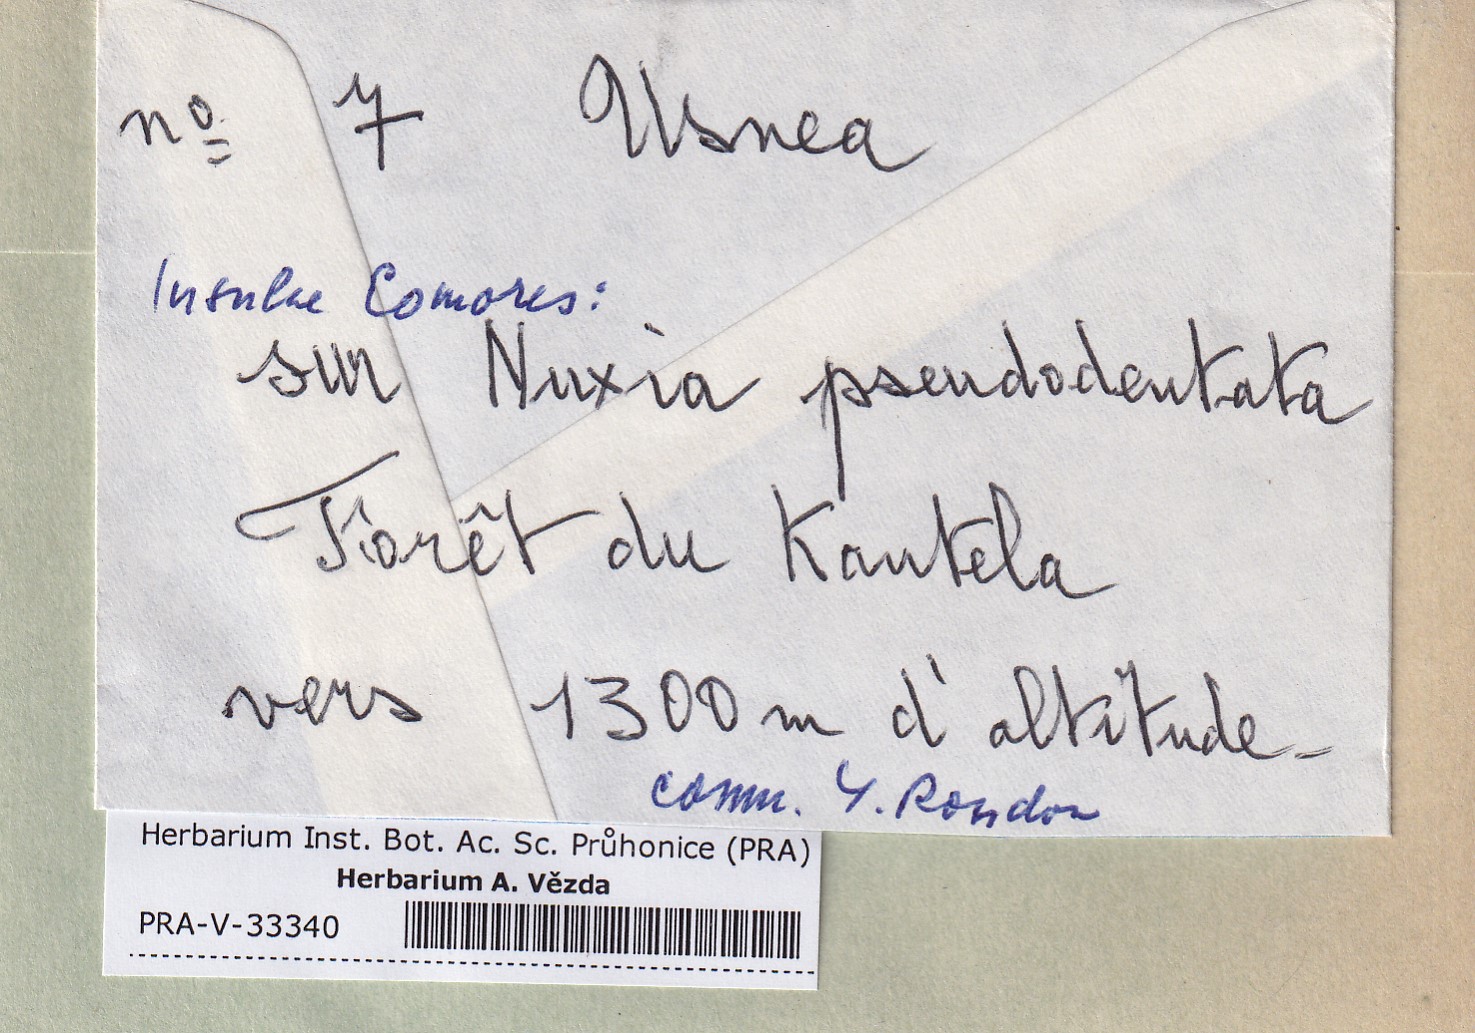 nº 7 Usnea
Insulae Comores:
sur Nuxia pseudodentata
Forêt du Kautela
vers 1300 m d'altitude -
comm. Y. Rondon
Herbarium Inst. Bot. Ac. Sc. Průhonice (PRA)
Herbarium A. Vězda
PRA-V-33340